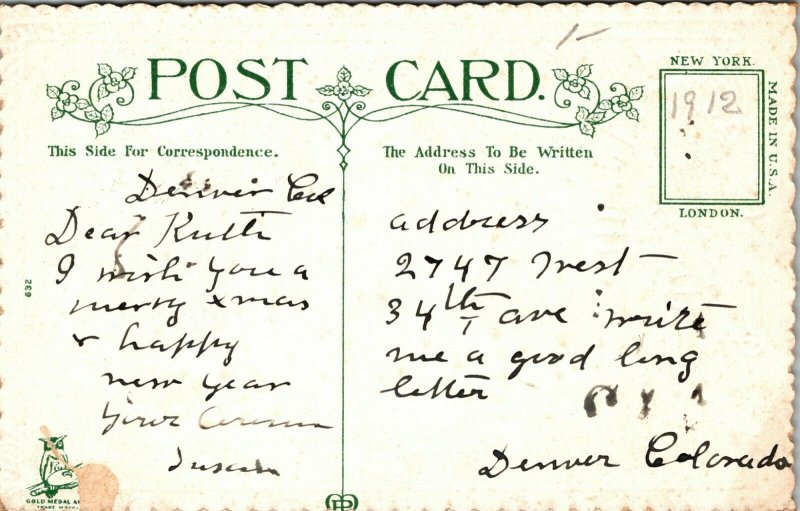 POST CARD.
NEW YORK.
1912
MADE IN U.S.A.
LONDON.
This Side For Correspondence.
The Address To Be Written
On This Side.
Denver Col
Dear Ruth
I wish you a
merry xmas
& happy
new year
your
632
GOLD MEDAL
TRADE MARK
address
2747 West
34th ave write
me a good long
letter
Denver Colorado
1-